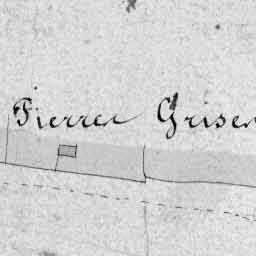 Pierres Grises